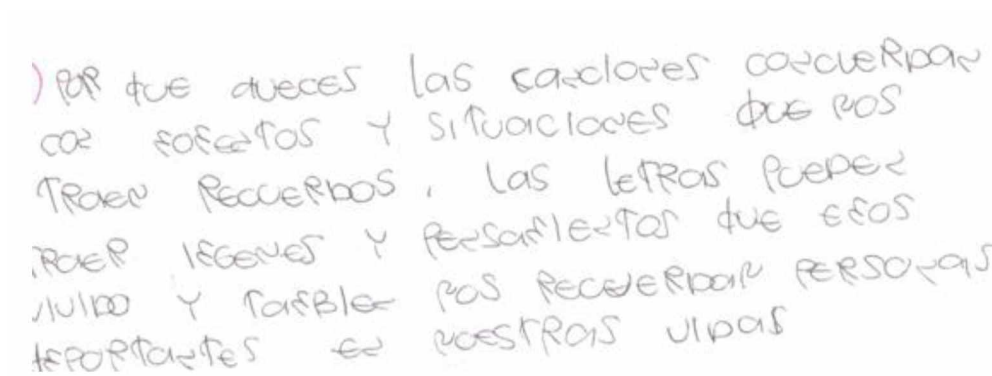 ) POR QUE AVECES LAS CANCIONES CONCUERDAN
CON MOMENTOS Y SITUACIONES QUE NOS
TRAEN RECUERDOS. LAS LETRAS PUEDEN
TRAER IMGENES Y PENSAMIENTOS QUE EMOS
VIVIDO Y TAMBIEN NOS RECUERDAN PERSONAS
IMPORTANTES EN NUESTRAS VIDAS